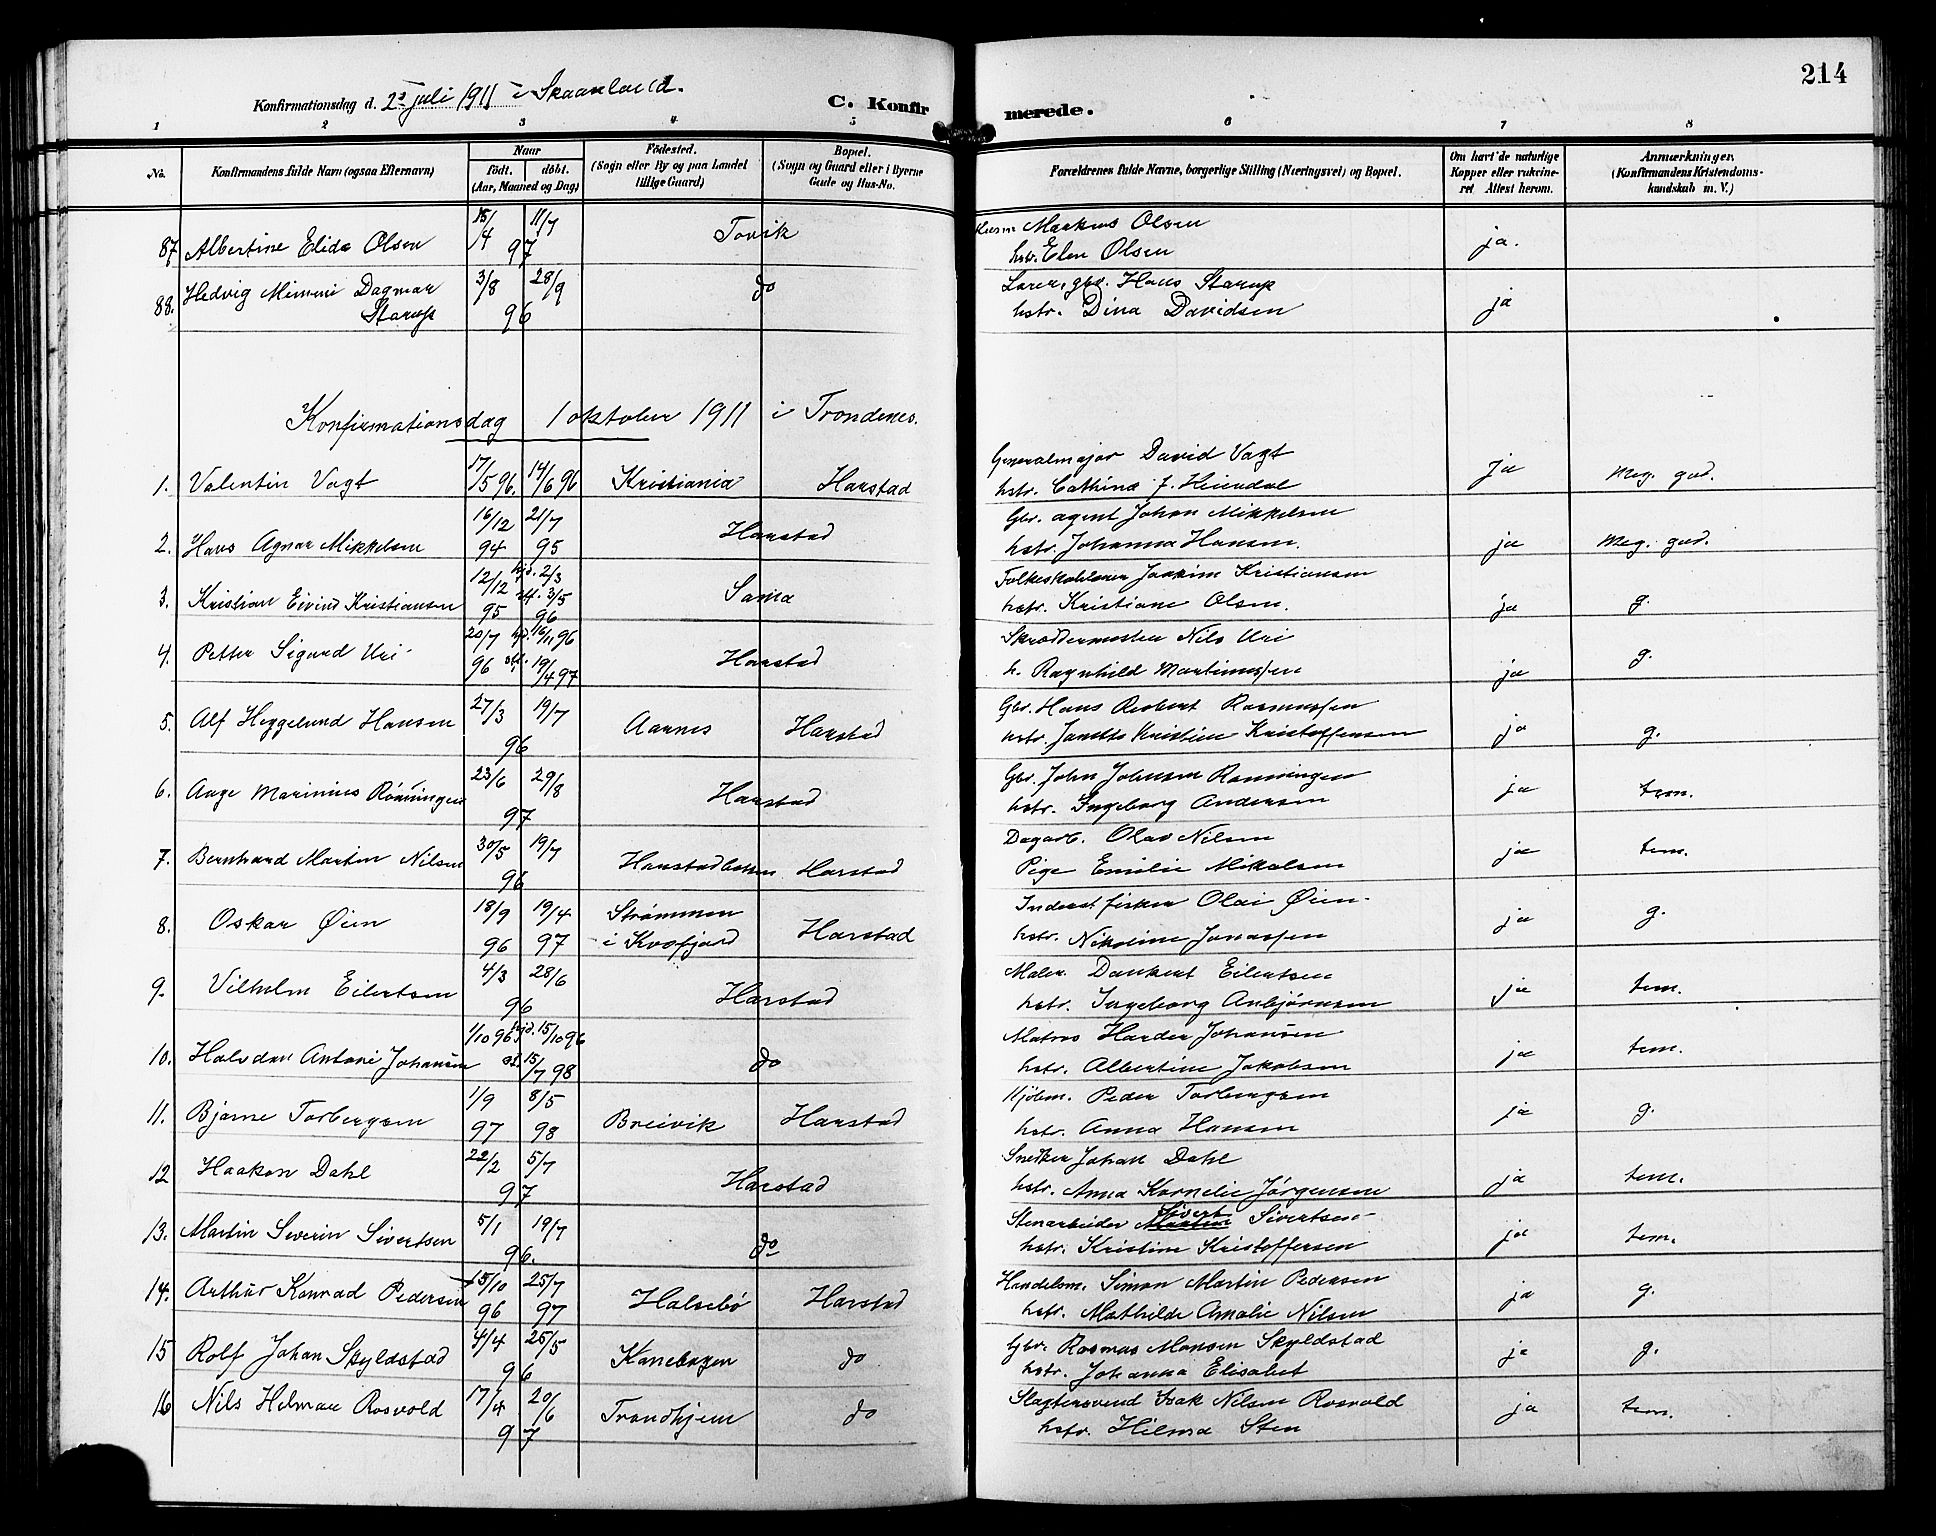 214
Konfirmationsdag d. 23 juli 1911 i Skaanland.
C. Konfirmerede.
1 2 3 4 5 6 7 8
No.
Konfirmandens fulde Navn (ogsaa Efternavn)
Naar
født. døbt.
(Aar, Maaned og Dag)
Fødested.
(Sogn eller By og paa Landet
tillige Gaard)
Bopæl.
(Sogn og Gaard eller i Byerne
Gade og Hus-No.
Forældrenes fulde Navne, borgerlige Stilling (Næringsvei) og Bopæl.
Om havt de naturlige
Kopper eller vakcine-
ret Attest herom.
Anmærkninger.
(Konfirmandens Kristendoms-
kundskab m. V.)
87. Albertine Elida Olsen 15/4 11/7 97 Tovik
Markus Olsen
hstr. Elen Olsen ja.
88. Hedvig Mimmi Dagmar
Starup 3/8 28/9 96 do
Lærer, gbr. Hans Starup
hstr. Dina Davidsen ja
Konfirmationsdag 1 oktober 1911 i Trondenes.
1. Valentin Vagt 17/5 96. 14/6 96 Kristiania Harstad
Generalmajor David Vagt
hstr. Cathina J. Heiendal ja Meg. god.
2. Hans Agnar Mikkelsen 16/12 94 21/7 95 Harstad
Gbr. agent Johan Mikkelsen
hstr. Johanna Hansen. ja Meg. god.
3. Kristian Eivind Kristiansen 12/12 95 hjd. 2/3 stf. 3/5 96 Sama
Folkeskolelærer Joakim Kristiansen
hstr. Kristiane Olsen. ja g.
4. Petter Sigurd Uri 20/7 96 hjd. 16/11 96 stf. 19/4 97 Harstad
Skræddermester Nils Uri
h. Ragnhild Martinussen ja g.
5. Alf Heggelund Hansen 27/3 19/7 96 Aarnes Harstad
Gbr. Hans Robert Rasmussen
hstr. Janetta Kristine Kristoffersen ja g.
6. Aage Marinius Rønningen 23/6 29/8 97 Harstad
Gbr. John Johnsen Rønningen
hstr. Ingeborg Andersen ja tem.
7. Bernhard Martin Nilsen 30/5 19/7 96 Harstadbotten Harstad
Dagarb. Olav Nilsen
Pige Emilie Mikalsen ja tem.
8. Oskar Øien 18/9 96 19/4 97 Strømmen
i Kvæfjord Harstad
Inderst fisker Olai Øien
hstr. Nikoline Jonassen ja g.
9. Vilhelm Eilertsen 4/3 28/6 96 Harstad
Maler. Dankert Eilertsen
hstr. Ingeborg Anbjørnsen ja tem.
10. Halvdan Antoni Johansen 1/10 96 hjd. 15/10 96 st. 15/7 98 do
Matros Harder Johansen
hstr. Albertine Jakobsen ja tem.
11. Bjarne Torbergsen 1/9 97 8/5 98 Breivik Harstad
Kjøbm. Peder Torbergsen
hstr. Anna Hansen ja g.
12 Haakon Dahl 22/2 5/7 97 Harstad
Snedker Johan Dahl
hstr. Anna Kornelie Jørgensen ja tem.
13. Martin Severin Sivertsen 5/1 19/7 96. do
Stenarbeider Martin Sivert Sivertsen
hstr. Kristine Kristoffersen ja tem.
14. Arthur Konrad Pedersen 15/10 96 25/7 97 Halsebø Harstad
Handelsm. Simon Martin Pedersen
hstr. Mathilde Amalie Nilsen ja g.
15 Rolf Johan Skyldstad 4/4 25/5 96 Kanebogen do
Gbr. Rasmus Monsen Skyldstad
hstr. Johanna Elisabet ja g.
16 Nils Hilmar Rosvold 17/4 20/6 97 Trondhjem do
Slagtersvend Isak Nilsen Rosvold
hstr. Hilma Sten ja tem.